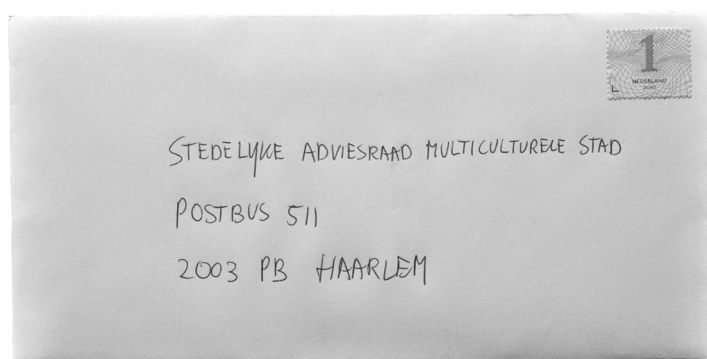 1
NEDERLAND
2010
STEDELYKE ADVIESRAAD MULTICULTURELE STAD
POSTBUS 511
2003 PB HAARLEM